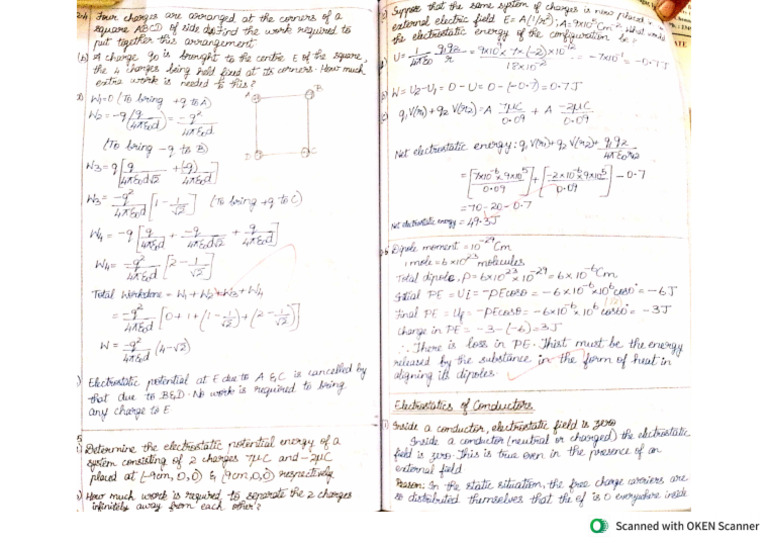 2.4 Four charges are arranged at the corners of a
square ABCD of side d. Find the work required to
put together this arrangement
(b) A charge q0 is brought to the centre E of the square,
the 4 charges being held fixed at its corners. How much
extra work is needed to this?
W1=0 (To bring +q to A)
W2 = -q(q/4πε0d) = -q²/4πε0d
(To bring -q to B)
A
B
D
C
W3 = q[q/4πε0d√2 + (-q)/4πε0d]
W3 = -q²/4πε0d [1 - 1/√2] (To bring +q to C)
W4 = -q[q/4πε0d + -q/4πε0d√2 + q/4πε0d]
W4 = -q²/4πε0d [2 - 1/√2]
Total Workdone = W1 + W2 + W3 + W4
= -q²/4πε0d [0+1+(1-1/√2)+(2-1/√2)]
W = -q²/4πε0d (4-√2)
) Electrostatic potential at E due to A & C is cancelled by
that due to B&D. No work is required to bring
any charge to E
5
1) Determine the electrostatic potential energy of a
system consisting of 2 charges 7μC and -2μC
placed at (-9cm, 0, 0) & (9cm, 0, 0) respectively
) How much work is required to separate the 2 charges
infinitely away from each other?
Suppose that the same system of charges is now placed
external electric field E = A(1/r²); A = 9×10⁵ Cm⁻² What would
the electrostatic energy of the configuration be?
U = 1/4πε0 q1q2/r = 9×10⁹×7×(-2)×10⁻¹²/18×10⁻² = -7×10⁻¹ = -0.7J
(b) W = U2-U1 = 0-U = 0-(-0.7) = 0.7J
(c) q1V(r1) + q2V(r2) = A 7μC/0.09 + A -2μC/0.09
Net electrostatic energy: q1V(r1) + q2V(r2) + q1q2/4πε0r12
= [7×10⁻⁶×9×10⁵/0.09] + [-2×10⁻⁶×9×10⁵/0.09] - 0.7
= 70-20-0.7
Net electrostatic energy = 49.3J
Dipole moment = 10⁻²⁹ Cm
1 mole = 6×10²³ molecules
Total dipole, P = 6×10²³×10⁻²⁹ = 6×10⁻⁶ Cm
Initial PE = Ui = -PEcosθ = -6×10⁻⁶×10⁶ cos0° = -6J
Final PE = Uf = -PEcosθ = -6×10⁻⁶×10⁶ cos60° = -3J
Change in PE = -3-(-6) = 3J
∴ There is loss in PE. This must be the energy
released by the substance in the form of heat in
aligning its dipoles
Electrostatics of Conductors
(1) Inside a conductor, electrostatic field is zero
Inside a conductor (neutral or charged) the electrostatic
field is zero. This is true even in the presence of an
external field
Reason: In the static situation, the free charge carriers are
so distributed themselves that the ef is 0 everywhere inside
Scanned with OKEN Scanner